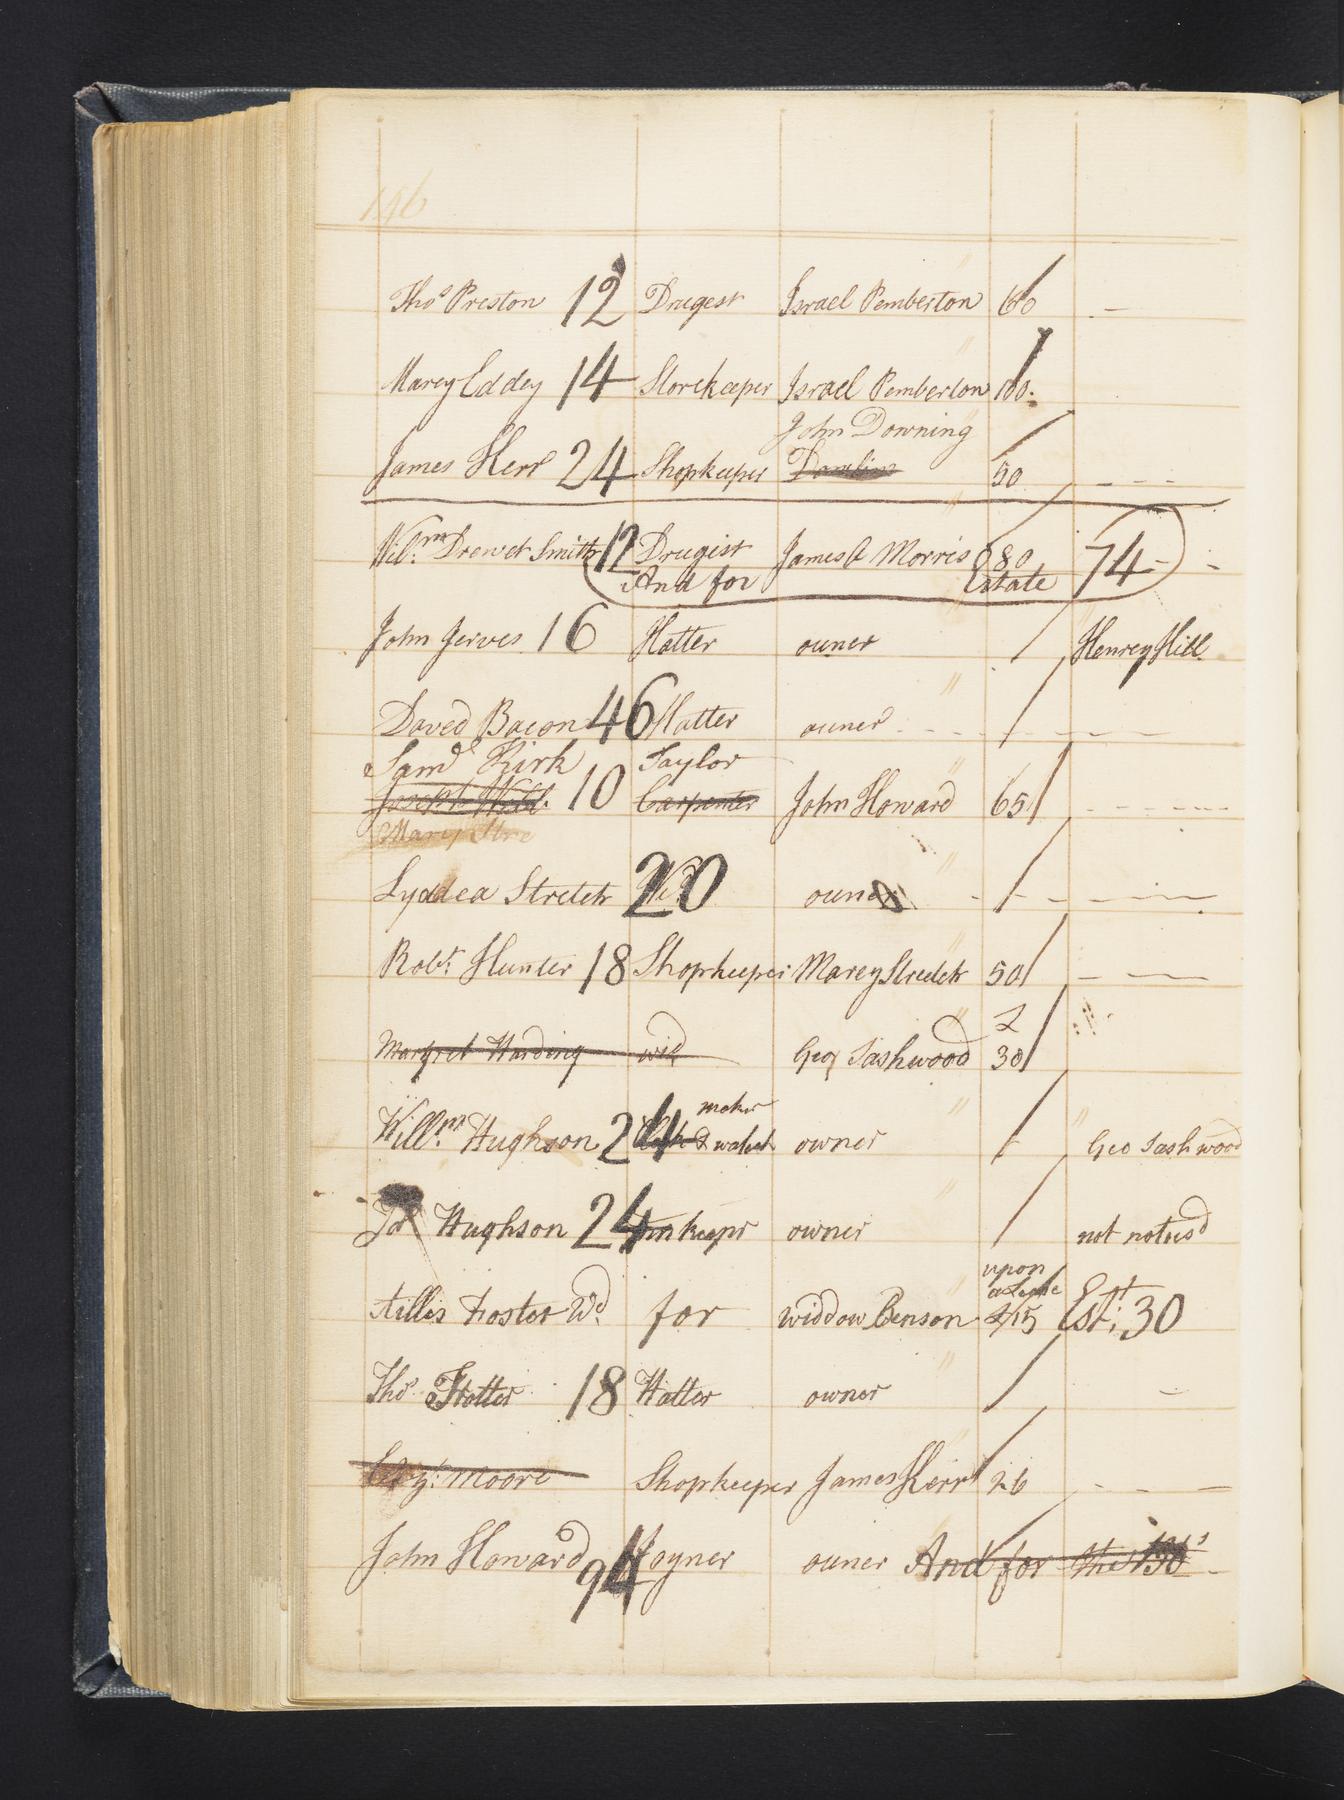 146
Thos Preston 12 Drugest Israel Pemberton 60 -
Marey Eddey 14 Storekeeper Israel Pemberton 100
John Downing
James Kerr 24 Shopkeeper 50 - - -
Willm Drewet Smith 12 Drugist James & Morris 80 74 -
And for Estate
John Jerves 16 Hatter owner Henrey Hill
Daved Bacon 46 Hatter owner
Saml Kirk Taylor
Joseph Webb 10 Carpenter John Howard 65
Marey Stre
Lyddea Stretch 20 owner
Robt Hunter 18 Shopkeeper Marey Stretch 50
£
Margret Harding wid Geo Sashwood 30
maker
Willm Hughson 24 Clock & watch owner Geo Sashwood
Jos Hughson 24 Innkeepr owner not notesd
upon
a Lease
Aillis Foster Wd for widdow Benson £15 Est: 30
Thos Trotter 18 Hatter owner -
Moore Shopkeeper James Kerr 26 - - -
John Howard 94 Joyner owner And for the